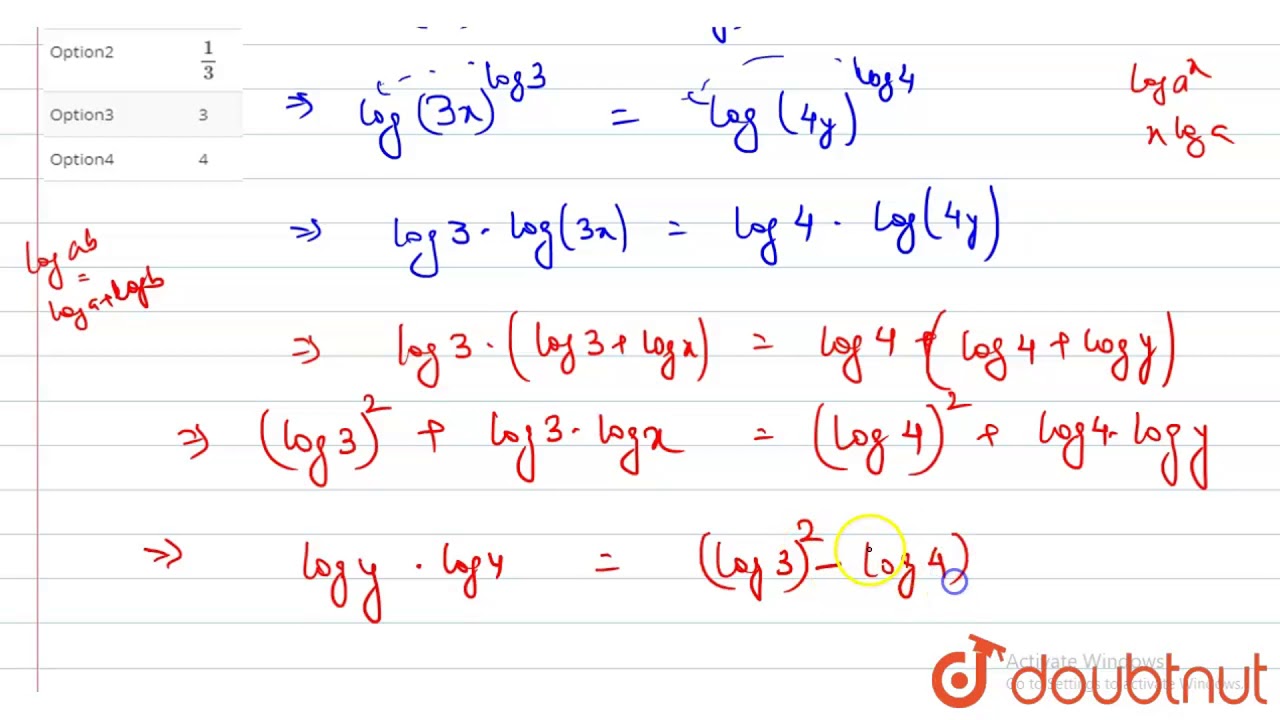 Option2 1/3
Option3 3
Option4 4
log a^x
x log a
⇒ log (3x)^log 3 = log (4y)^log 4
⇒ log 3 · log (3x) = log 4 · log (4y)
log ab
=
log a + log b
⇒ log 3 · (log 3 + log x) = log 4 + (log 4 + log y)
⇒ (log 3)^2 + log 3 · log x = (log 4)^2 + log 4 · log y
⇒ log y · log 4 = (log 3)^2 - log 4)
Activate Windows
Go to Settings to activate Windows.
doubtnut